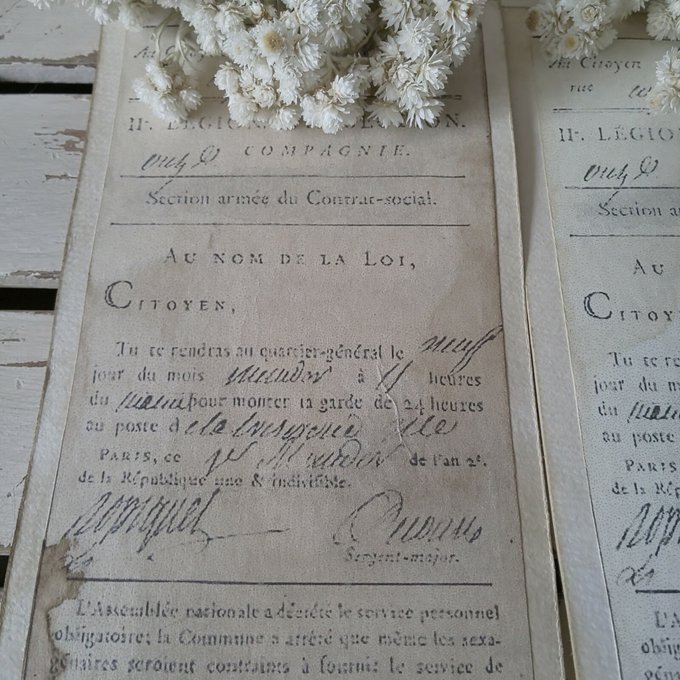 Au Citoyen
IIe. LÉGION
onze
COMPAGNIE.
Section armée du Contrat-social.
AU NOM DE LA LOI,
CITOYEN,
Tu te rendras au quartier-général le neuf
jour du mois messidor à 11 heures
du matin pour monter la garde de 24 heures
au poste de la trésorerie
PARIS, ce messidor de l'an 2e.
de la République une & indivisible.
Sergent-major.
L'Assemblée nationale a décrété le service personnel
obligatoire; la Commune a arrêté que même les sexa-
génaires seroient contraints à fournir le service de
Au Citoyen
rue
IIe. LÉGION
onze
Section ar
AU
CITOY
Tu te re
jour du m
du matin
au poste
PARIS
de la Rép
L'A
oblig
géna